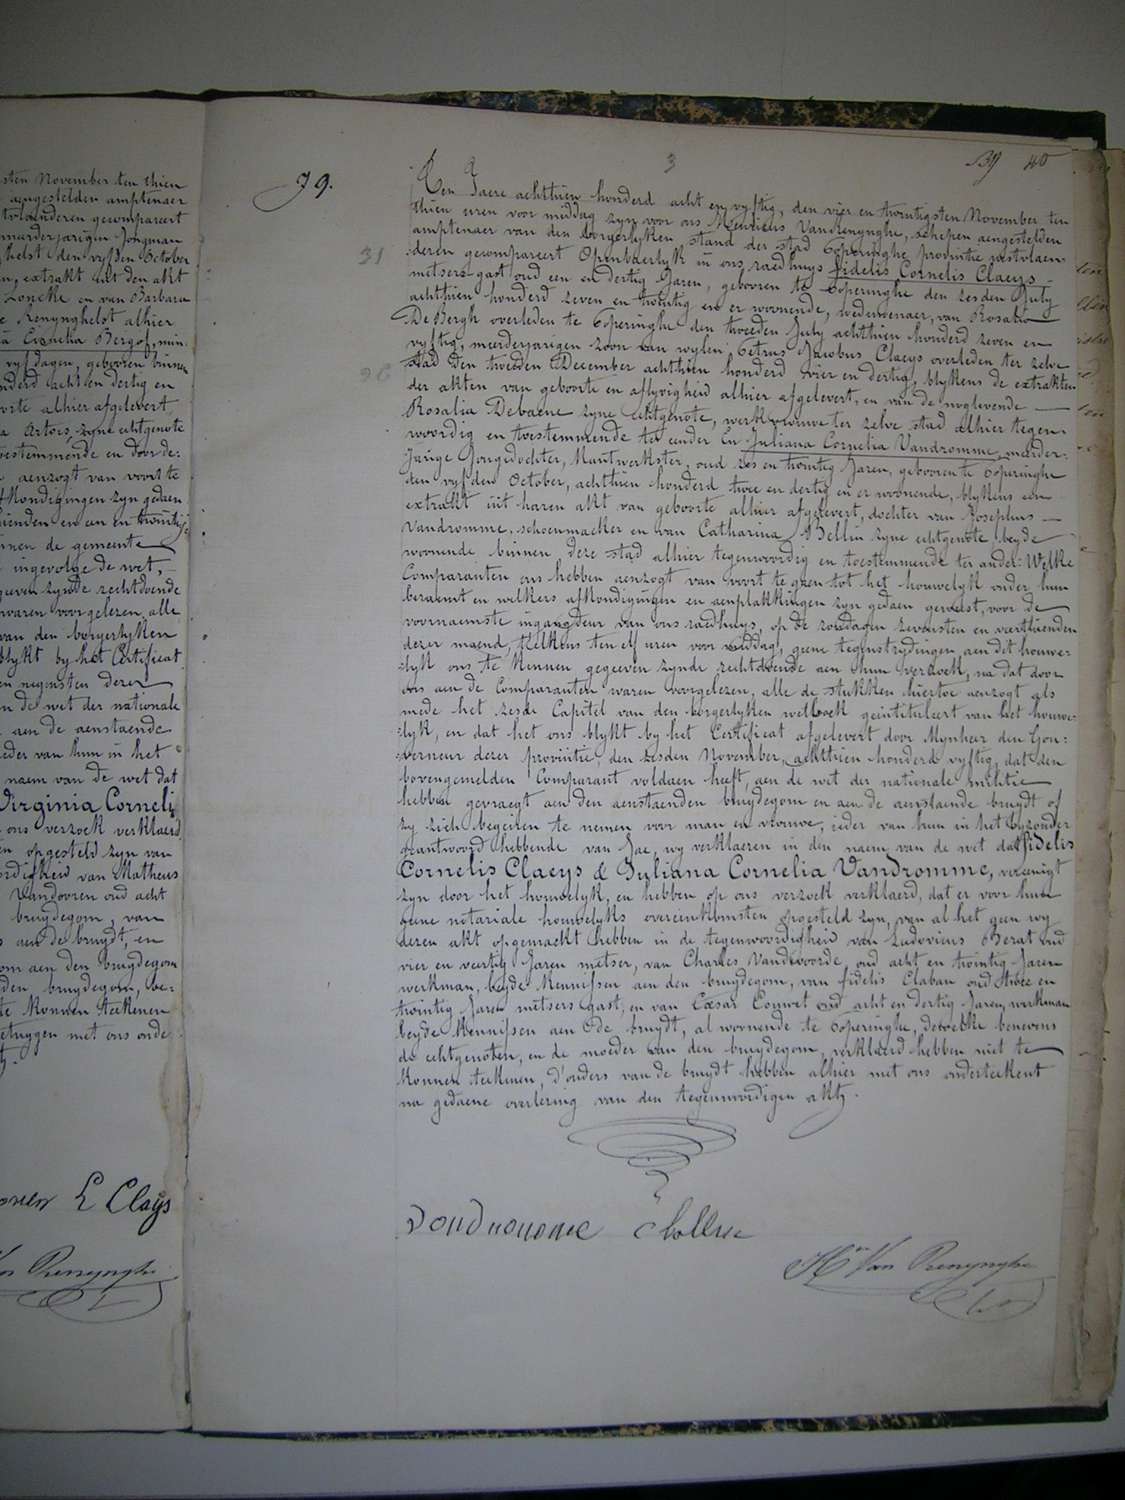 sten November ten thien
aengestelden amptenaer
tvlaanderen gecompareert
meerderjarigen Jongman
ghelst den vyfden October
n, extrakt uit den akt
Loncke en van Barbara
e Renynghelst alhier
ia Evonlia Bergof, min:
vyf dagen, gebooren binnen
nderd acht en dertig en
oorte alhier afgelevert
a Artois, zyne echtgenote
toestemmende en door de:
aenzogt van voort te
fkondigingen zyn gedaen
hienden en een en twintig
nnen de gemeente
ingevolge de wet,
geven zynde rechtdoende
waren voorgelezen, alle
van den borgerlyken
blykt by het Certificaet
en negensten dezer
n de wet der nationale
aen de aenstaende
ieder van hum in het
naem van de wet dat
Virginia Corneli
ons verzoek verklaerd
en opgesteld zyn van
ordigheid van Matheus
Vandooren oud acht
bruydegom, van
aen de bruydt, en
om aen den bruydegom
den bruydegom, be:
te konnen teekenen
etuygen met ons onde
L Claijs
Van Renynghe
79.
3
39 40
31
26
Ten Jaere achthien honderd acht en vyftig, den vier en twintigsten November ten
thien uren voor middag zyn voor ons Henricus Vanrenynghe, schepen aengestelden
amptenaer van den borgerlyken stand der stad Poperinghe provintie westvlaen-
deren gecompareert Openbaerlyk in ons raedhuys Fidelis Cornelis Claeys
metsers gast oud een en dertig Jaren, gebooren te Poperinghe den zesden July
achthien honderd zeven en twintig en er woonende, weduwenaer, van Rosalia
De Bergh overleden te Poperinghe den tweeden July achthien honderd zeven en
vyftig, meerderjarigen zoon van wylen Petrus Jacobus Claeys overleden ter zelve
stad den tweeden December achthien honderd vier en dertig, blykens de extrakten
der akten van geboorte en aflyvigheid alhier afgelevert, en van de noglevende
Rosalia Debaene zyne echtgenote, werkvrouwe ter zelve stad alhier tegen-
woordig en toestemmende ter eender En Juliana Cornelia Vandromme, meerder-
Jarige Jongedochter, Kantwerkster, oud zes en twintig Jaren, gebooren te Poperinghe
den vyfden October, achthien honderd twee en dertig en er woonende, blykens een
extrakt uit haren akt van geboorte alhier afgelevert, dochter van Josephus
Vandromme, schoenmaeker en van Catharina Bellin zyne echtgenote beyde
woonende binnen deze stad alhier tegenwoordig en toestemmende ter ander: Welke
Comparanten ons hebben aenzogt van voort te gaen tot het houwelyk onder hum
beraemt en welkers afkondigingen en aenplakkingen zyn gedaen geweest, voor de
voornaemste ingangdeur van ons raedhuys, op de zondagen zevensten en veerthienden
dezer maend, telkens ten elf uren voor middag, geene tegenstrydingen aen dit houwe-
lyk ons te kinnen gegeven zynde rechtdoende aen hun verzoek, na dat door
ons aen de Comparanten waren voorgelezen, alle de stukken hiertoe aenzogt als
mede het zesde Capitel van den borgerlyken wetboek geintituleert van het houwe-
lyk, en dat het ons blykt by het Certificaet afgelevert door Mynheer den Gou:
verneur dezer provintie, den zesden November, achthien honderd vyftig, dat den
bovengemelden Comparant voldaen heeft, aen de wet der nationale militie
hebben gevraegt aen den aenstaenden bruydegom en aen de aenstaende bruydt of
zy zich begeiren te nemen voor man en vrouwe, ieder van hum in het byzonder
geantwoord hebbende van Jae, wy verklaeren in den naem van de wet dat Fidelis
Cornelis Claeys & Juliana Cornelia Vandromme, vereenigt
zyn door het houwelyk, en hebben op ons verzoek verklaerd, dat er voor hum
geene notariale houwelyks overeenkomsten opgesteld zyn, van al het geen wy
dezen akt opgemaekt hebben in de tegenwoordigheid van Ludovicus Berat oud
vier en veertig Jaren metser, van Charles Vandevoorde, oud acht en twintig Jaren
werkman, beyde kennissen aen den bruydegom, van Fidelis Claban oud twee en
twintig Jaren metsers gast, en van Cæsar Couwet oud acht en dertig Jaren, werkman
beyde kennissen aen de bruydt, al woonende te Poperinghe, dewelke benevens
de echtgenoten, en de moeder van den bruydegom, verklaerd hebben niet te
konnen teekenen, d'ouders van de bruydt hebben alhier met ons onderteekent
na gedaene overlezing van den tegenwoordigen akt.
Vandromme C bellin
Hri Van Renynghe